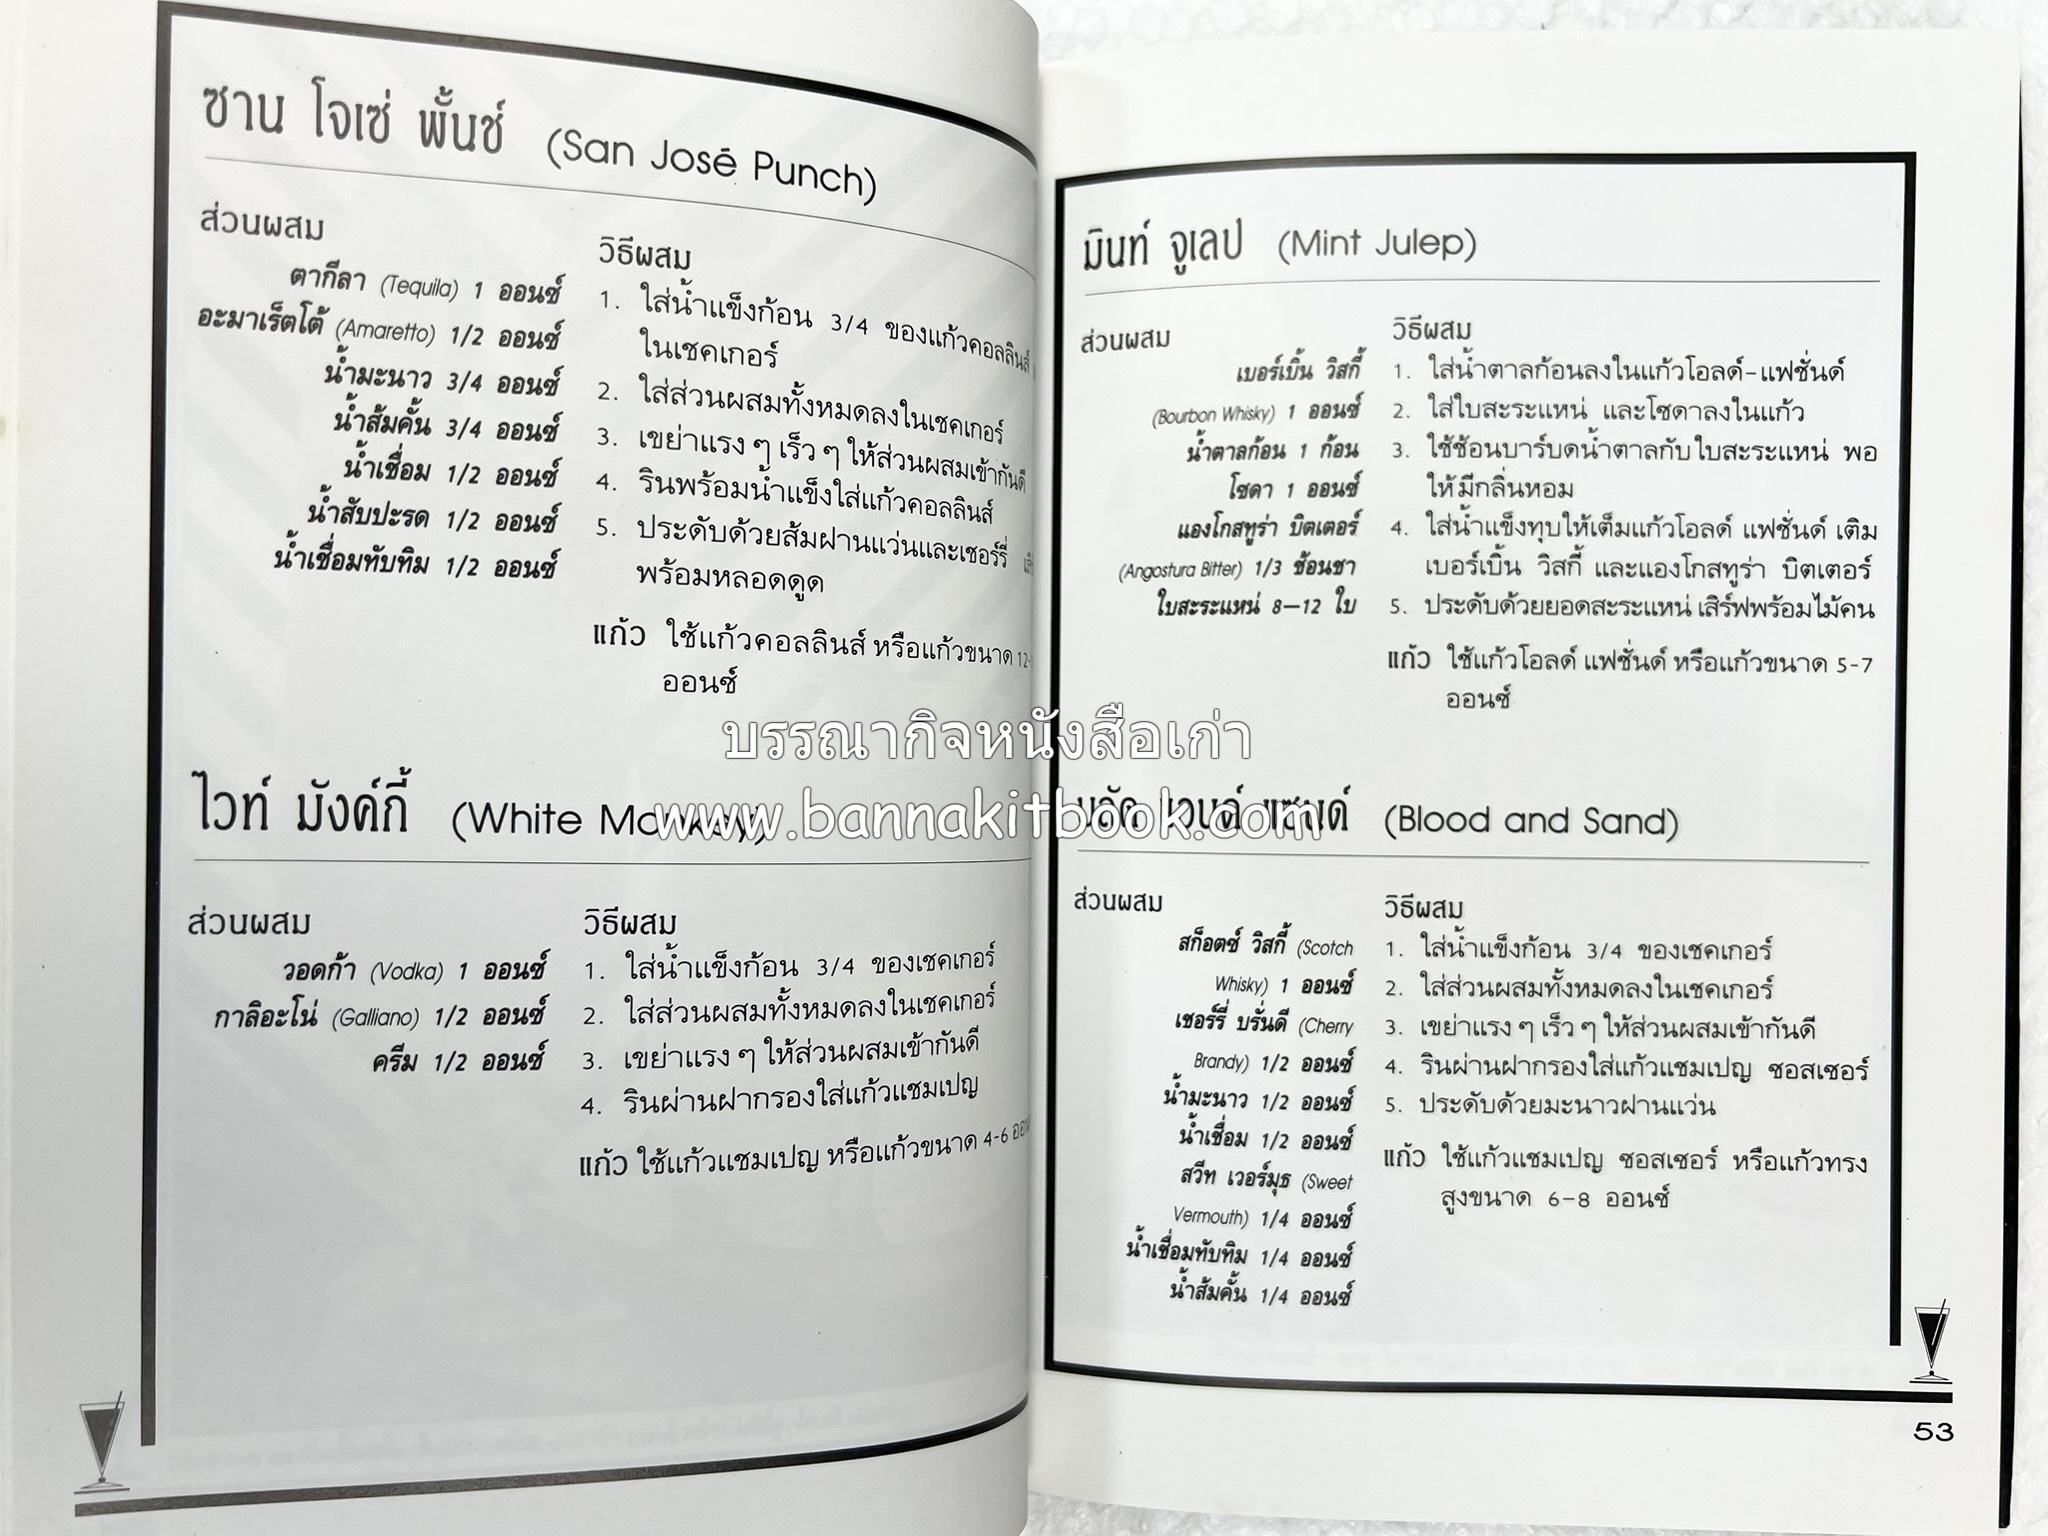 ซาน โจเซ่ พั้นช์ (San José Punch)
ส่วนผสม
ตากีลา (Tequila) 1 ออนซ์
อะมาเร็ตโต้ (Amaretto) 1/2 ออนซ์
น้ำมะนาว 3/4 ออนซ์
น้ำส้มคั้น 3/4 ออนซ์
น้ำเชื่อม 1/2 ออนซ์
น้ำสับปะรด 1/2 ออนซ์
น้ำเชื่อมทับทิม 1/2 ออนซ์
วิธีผสม
1. ใส่น้ำแข็งก้อน 3/4 ของแก้วคอลลินส์
ในเชคเกอร์
2. ใส่ส่วนผสมทั้งหมดลงในเชคเกอร์
3. เขย่าแรง ๆ เร็ว ๆ ให้ส่วนผสมเข้ากันดี
4. รินพร้อมน้ำแข็งใส่แก้วคอลลินส์
5. ประดับด้วยส้มฝานแว่นและเชอร์รี่
พร้อมหลอดดูด
แก้ว ใช้แก้วคอลลินส์ หรือแก้วขนาด 12-
ออนซ์
ไวท์ มังค์กี้ (White Monkey)
ส่วนผสม
วอดก้า (Vodka) 1 ออนซ์
กาลิอะโน่ (Galliano) 1/2 ออนซ์
ครีม 1/2 ออนซ์
วิธีผสม
1. ใส่น้ำแข็งก้อน 3/4 ของเชคเกอร์
2. ใส่ส่วนผสมทั้งหมดลงในเชคเกอร์
3. เขย่าแรง ๆ ให้ส่วนผสมเข้ากันดี
4. รินผ่านฝากรองใส่แก้วแชมเปญ
แก้ว ใช้แก้วแชมเปญ หรือแก้วขนาด 4-6
บรรณากิจหนังสือเก่า
www.bannakitbook.com
มินท์ จูเลป (Mint Julep)
ส่วนผสม
เบอร์เบิ้น วิสกี้
(Bourbon Whisky) 1 ออนซ์
น้ำตาลก้อน 1 ก้อน
โซดา 1 ออนซ์
แองโกสทูร่า บิตเตอร์
(Angostura Bitter) 1/3 ช้อนชา
ใบสะระแหน่ 8–12 ใบ
วิธีผสม
1. ใส่น้ำตาลก้อนลงในแก้วโอลด์-แฟชั่นด์
2. ใส่ใบสะระแหน่ และโซดาลงในแก้ว
3. ใช้ช้อนบาร์บดน้ำตาลกับใบสะระแหน่ พอ
ให้มีกลิ่นหอม
4. ใส่น้ำแข็งทุบให้เต็มแก้วโอลด์ แฟชั่นด์ เติม
เบอร์เบิ้น วิสกี้ และแองโกสทูร่า บิตเตอร์
5. ประดับด้วยยอดสะระแหน่ เสิร์ฟพร้อมไม้คน
แก้ว ใช้แก้วโอลด์ แฟชั่นด์ หรือแก้วขนาด 5-7
ออนซ์
บลัด แอนด์ แซนด์ (Blood and Sand)
ส่วนผสม
สก็อตซ์ วิสกี้ (Scotch
Whisky) 1 ออนซ์
เชอร์รี่ บรั่นดี (Cherry
Brandy) 1/2 ออนซ์
น้ำมะนาว 1/2 ออนซ์
น้ำเชื่อม 1/2 ออนซ์
สวีท เวอร์มุธ (Sweet
Vermouth) 1/4 ออนซ์
น้ำเชื่อมทับทิม 1/4 ออนซ์
น้ำส้มคั้น 1/4 ออนซ์
วิธีผสม
1. ใส่น้ำแข็งก้อน 3/4 ของเชคเกอร์
2. ใส่ส่วนผสมทั้งหมดลงในเชคเกอร์
3. เขย่าแรง ๆ เร็ว ๆ ให้ส่วนผสมเข้ากันดี
4. รินผ่านฝากรองใส่แก้วแชมเปญ ซอสเซอร์
5. ประดับด้วยมะนาวฝานแว่น
แก้ว ใช้แก้วแชมเปญ ซอสเซอร์ หรือแก้วทรง
สูงขนาด 6–8 ออนซ์
53